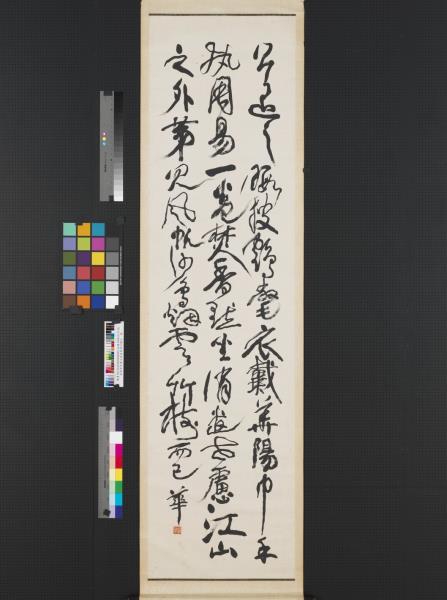 公退之暇披鶴氅衣戴華陽巾手
執周易一卷焚香默坐消遣世慮江山
之外第見風帆沙鳥煙雲竹樹而已 華